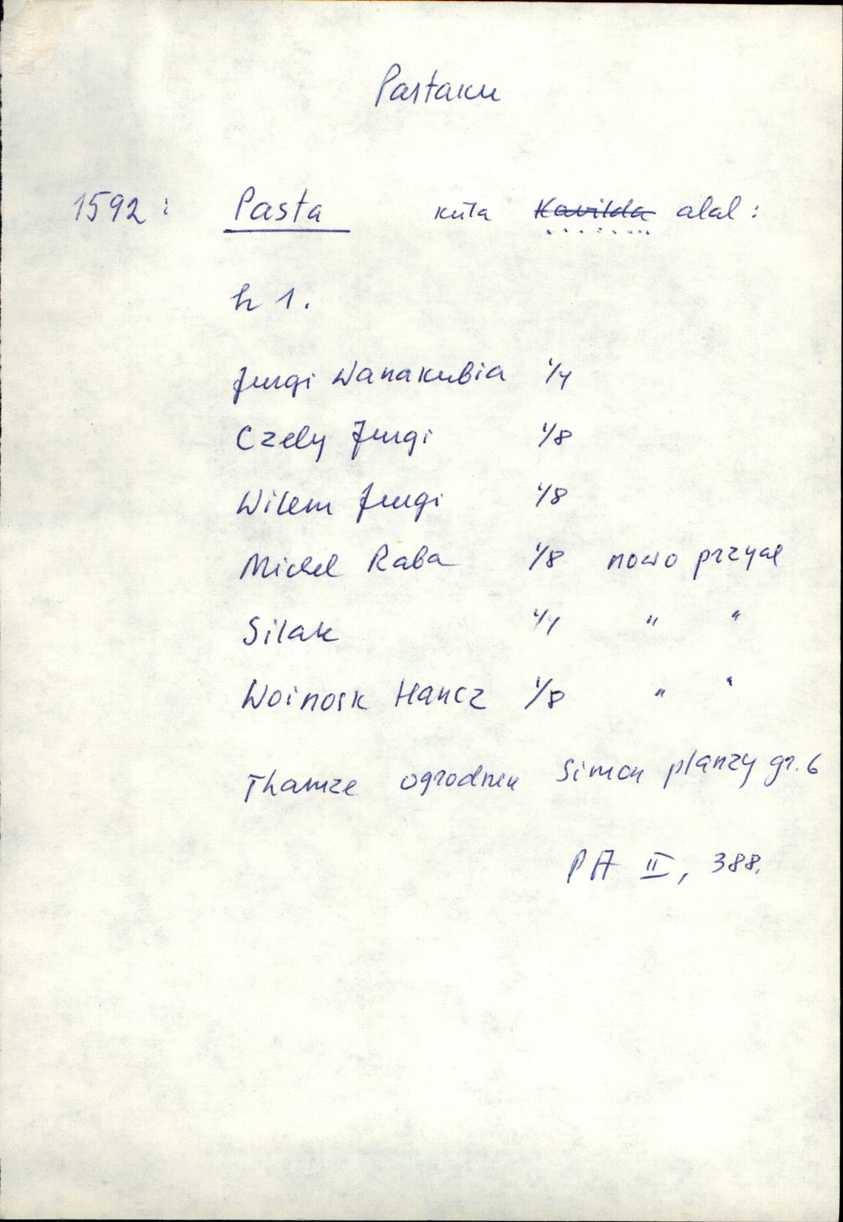 Pastaku
1592: Pasta küla Kavilda alal:
h 1.
Jurgi Wanakubia 1/4
Czely Jurgi 1/8
Willem Jurgi 1/8
Michel Raba 1/8 nowo przyał
Silak 1/4 " "
Woinosk Hancz 1/8 " "
Thamze ogrodnik Simon planzy gr. 6
PA II, 388.